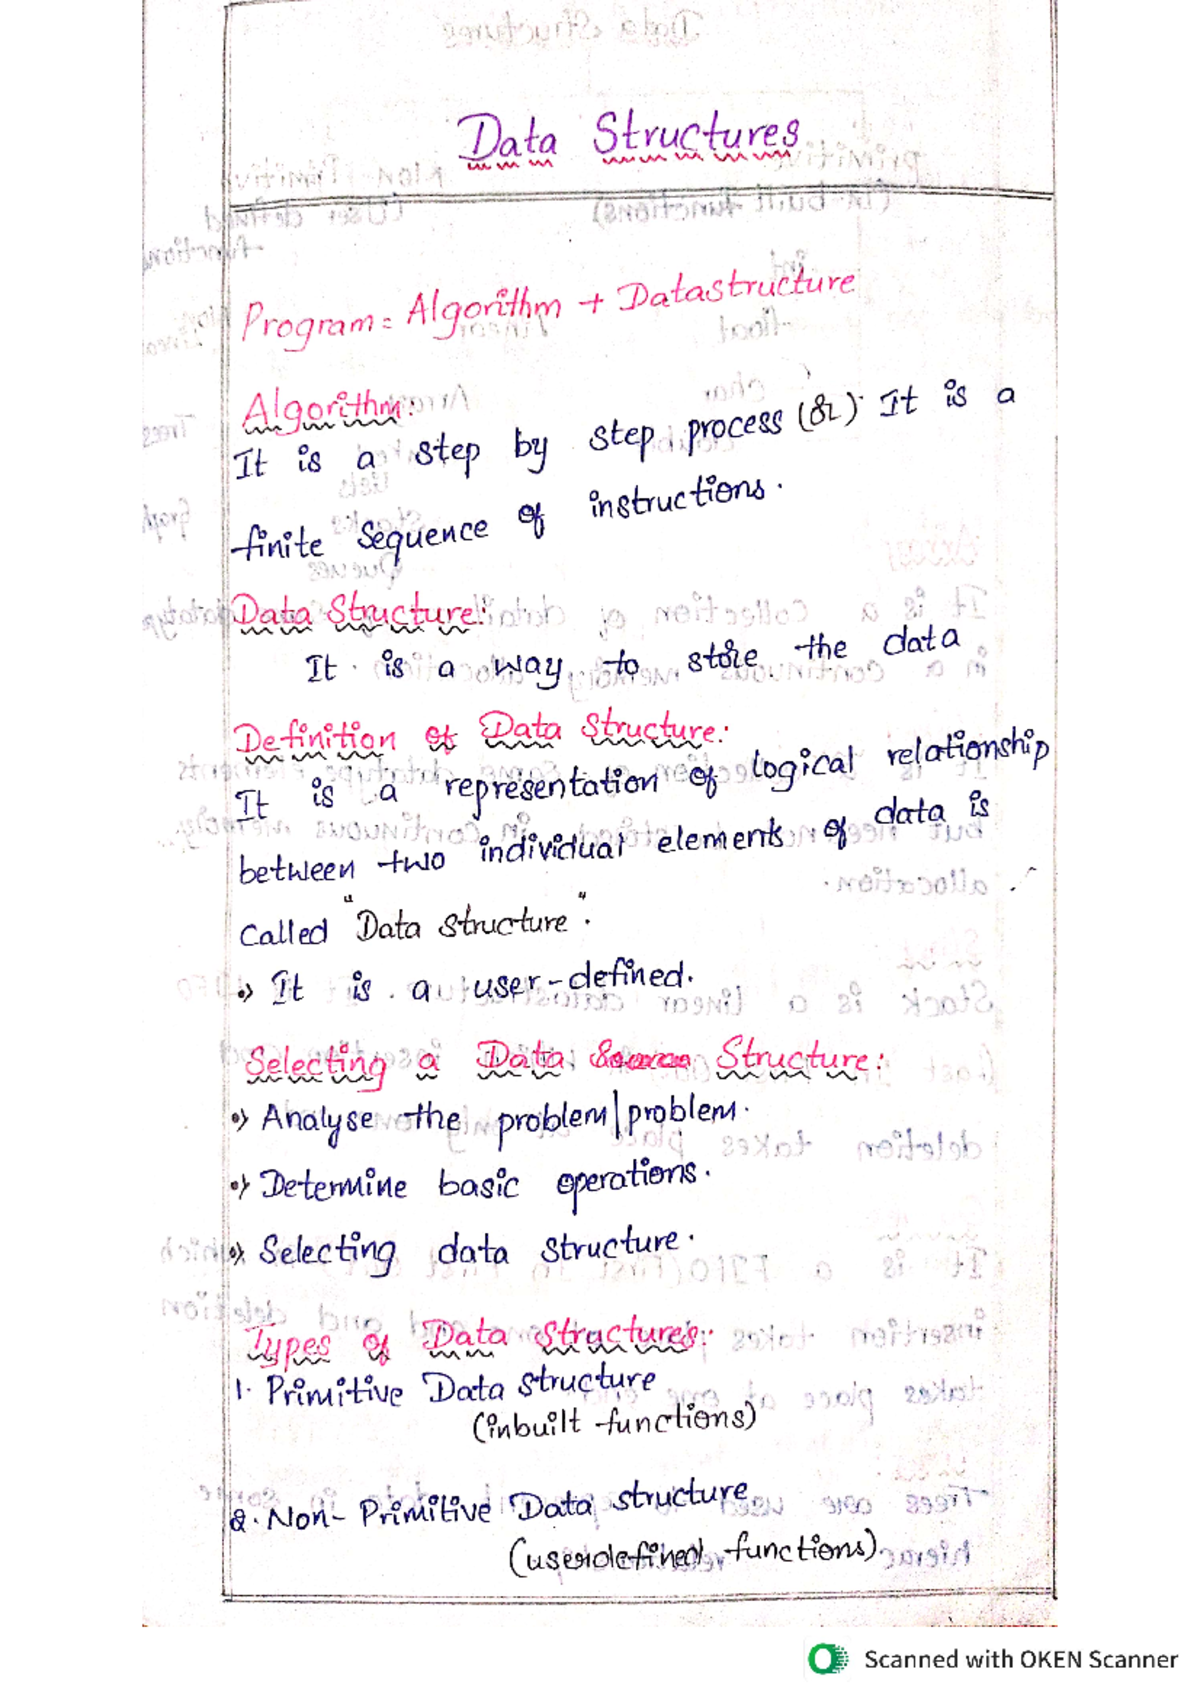 Data Structures
Program = Algorithm + Datastructure
Algorithm:
It is a step by step process (or) It is a
finite Sequence of instructions.
Data Structure:
It is a way to store the data
Definition of Data Structure:
It is a representation of logical relationship
between two individual elements of data is
Called "Data structure".
It is a user-defined.
Selecting a Data Structure:
Analyse the problem/problem.
Determine basic operations.
Selecting data structure.
Types of Data Structures:
1. Primitive Data structure
(inbuilt functions)
2. Non-Primitive Data structure
(userdefined functions).
Scanned with OKEN Scanner